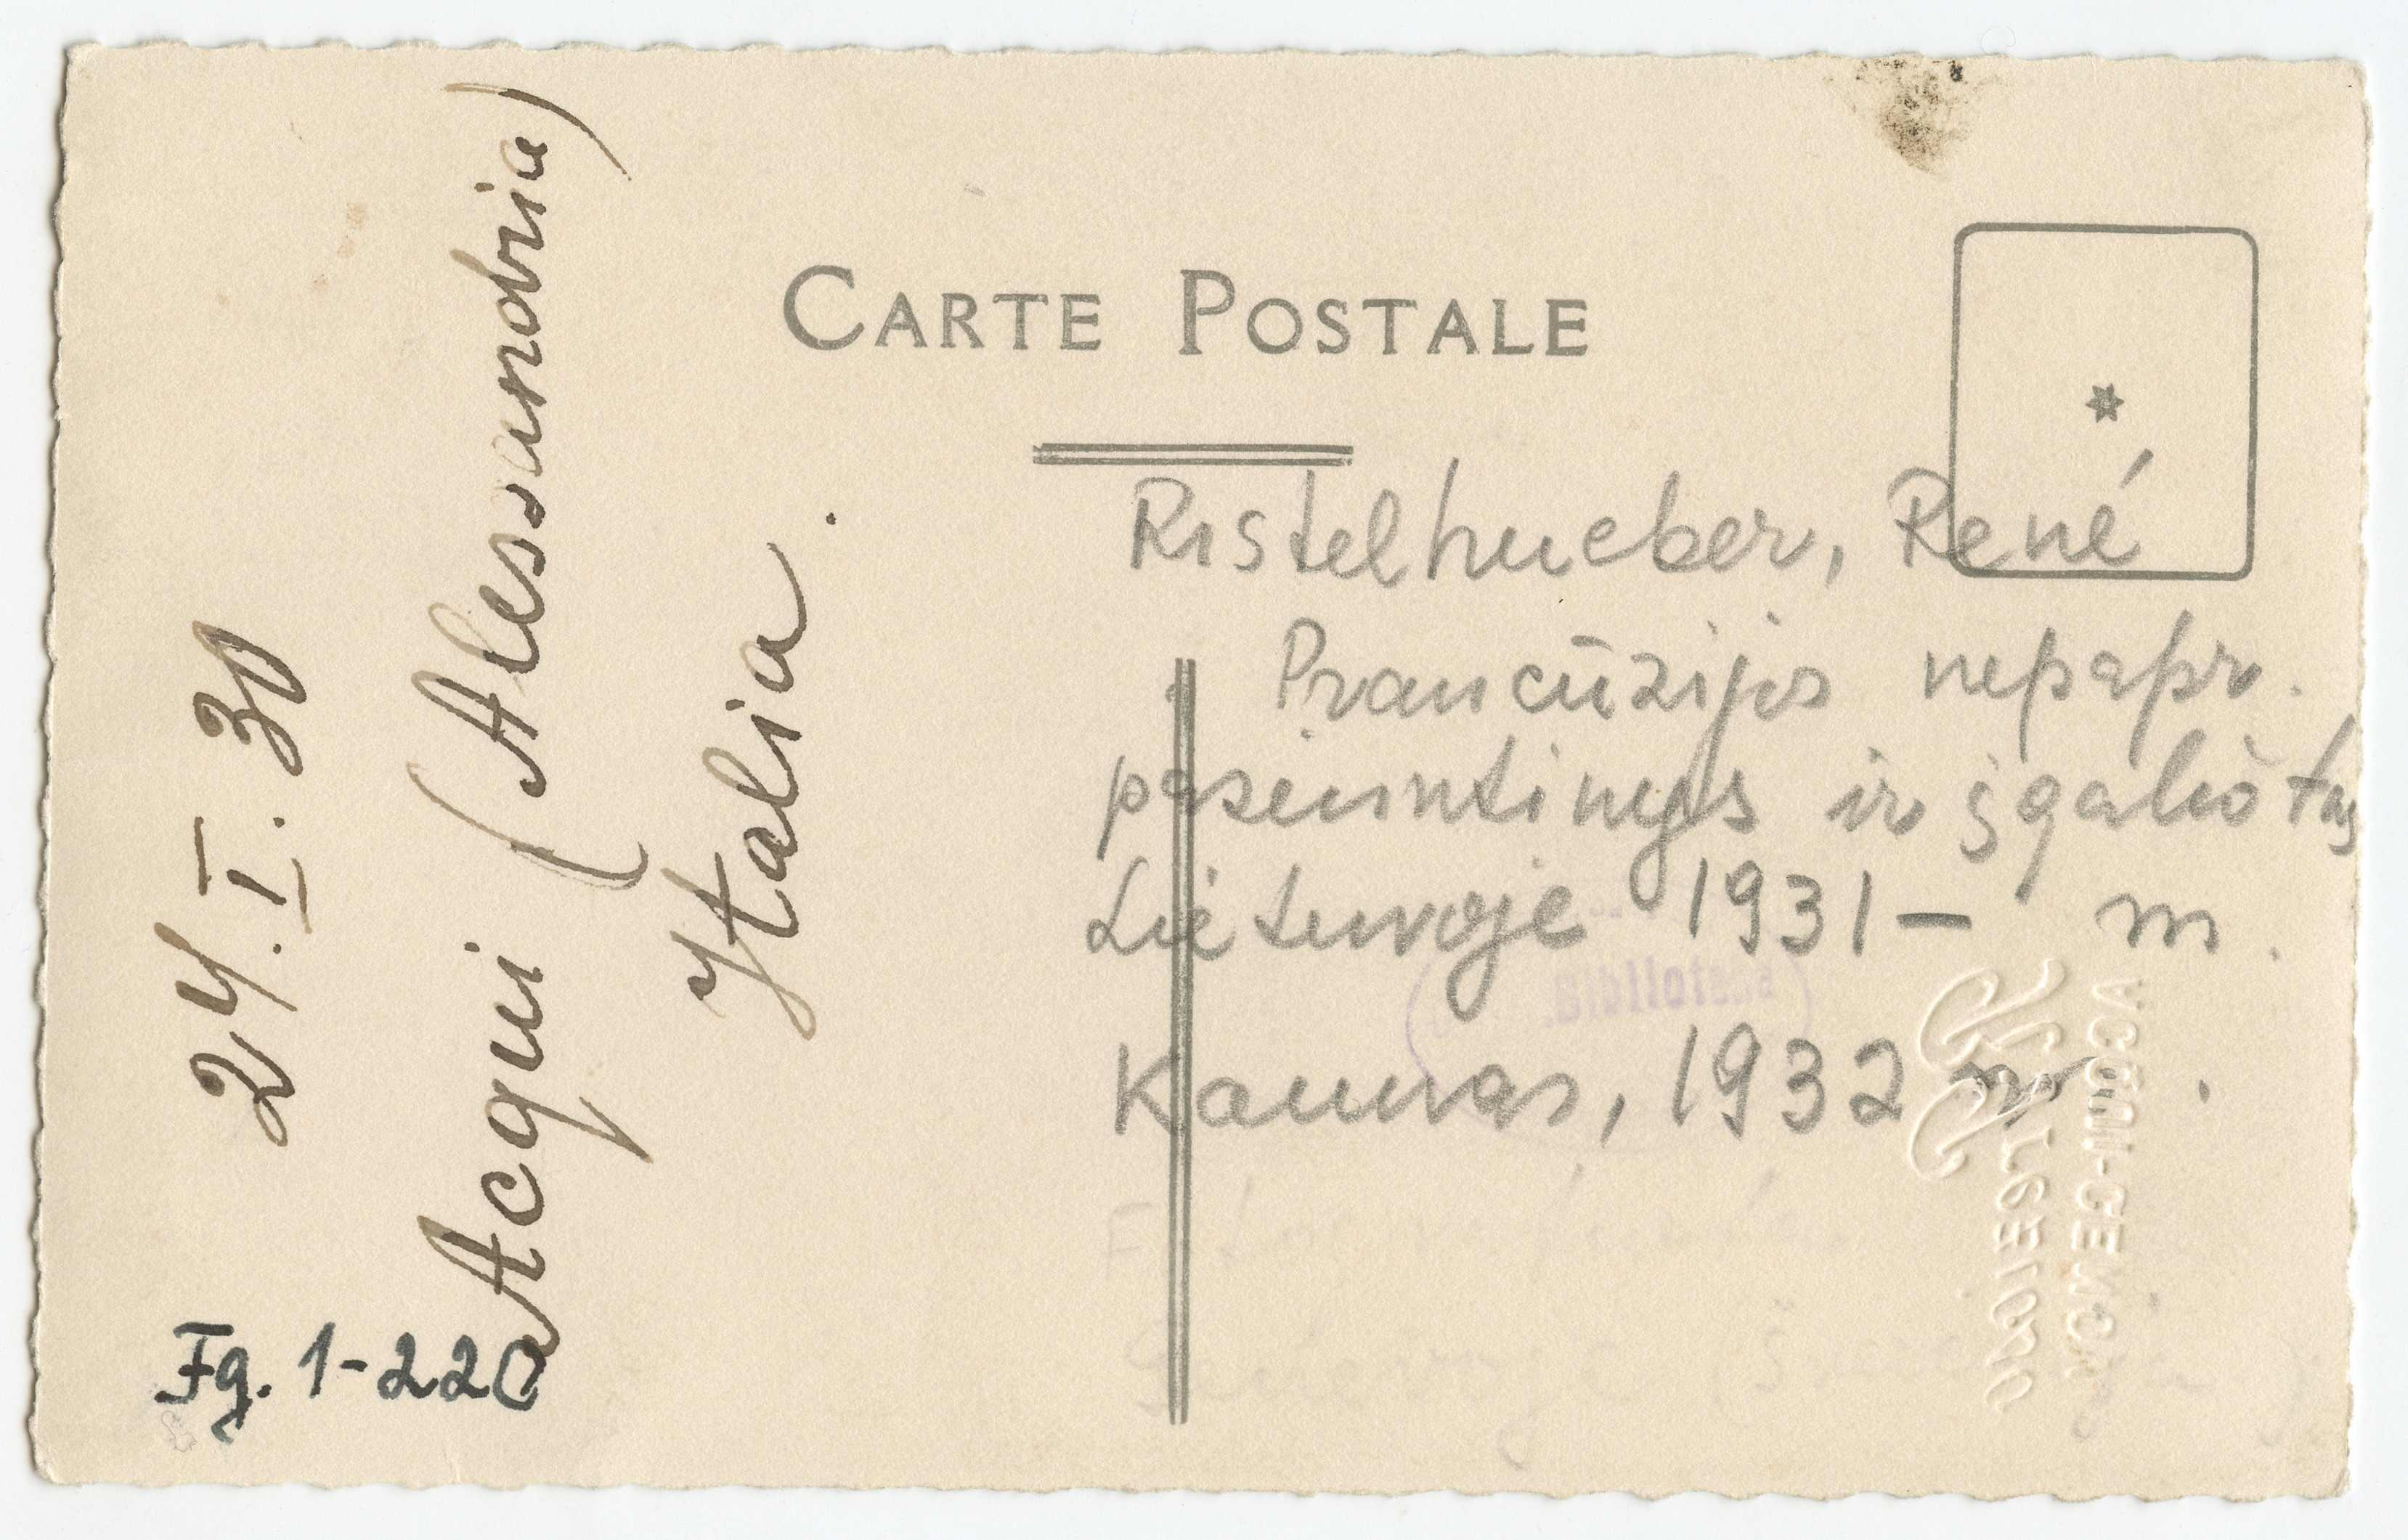 24.I.30
Acqui (Alessandria)
Italia.
CARTE POSTALE
Ristelhueber, René
Prancūzijos nepapr.
pasiuntinys ir įgaliotas
Lietuvoje 1931– m.
Kaunas, 1932 m.
Biblioteka
ACQUI-GENOVA
Fg. 1-220